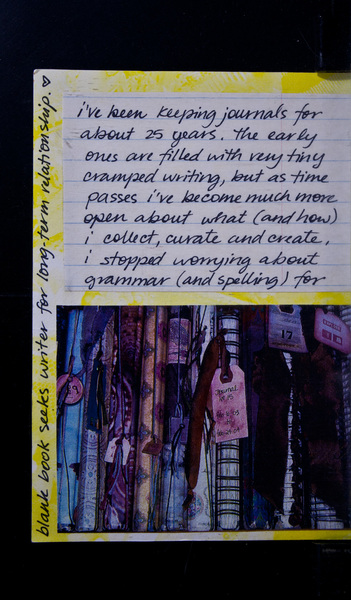 blank book seeks writer for long-term relationship. ♡
i've been keeping journals for
about 25 years. the early
ones are filled with very tiny
cramped writing, but as time
passes i've become much more
open about what (and how)
i collect, curate and create.
i stopped worrying about
grammar (and spelling) for
Journal
17